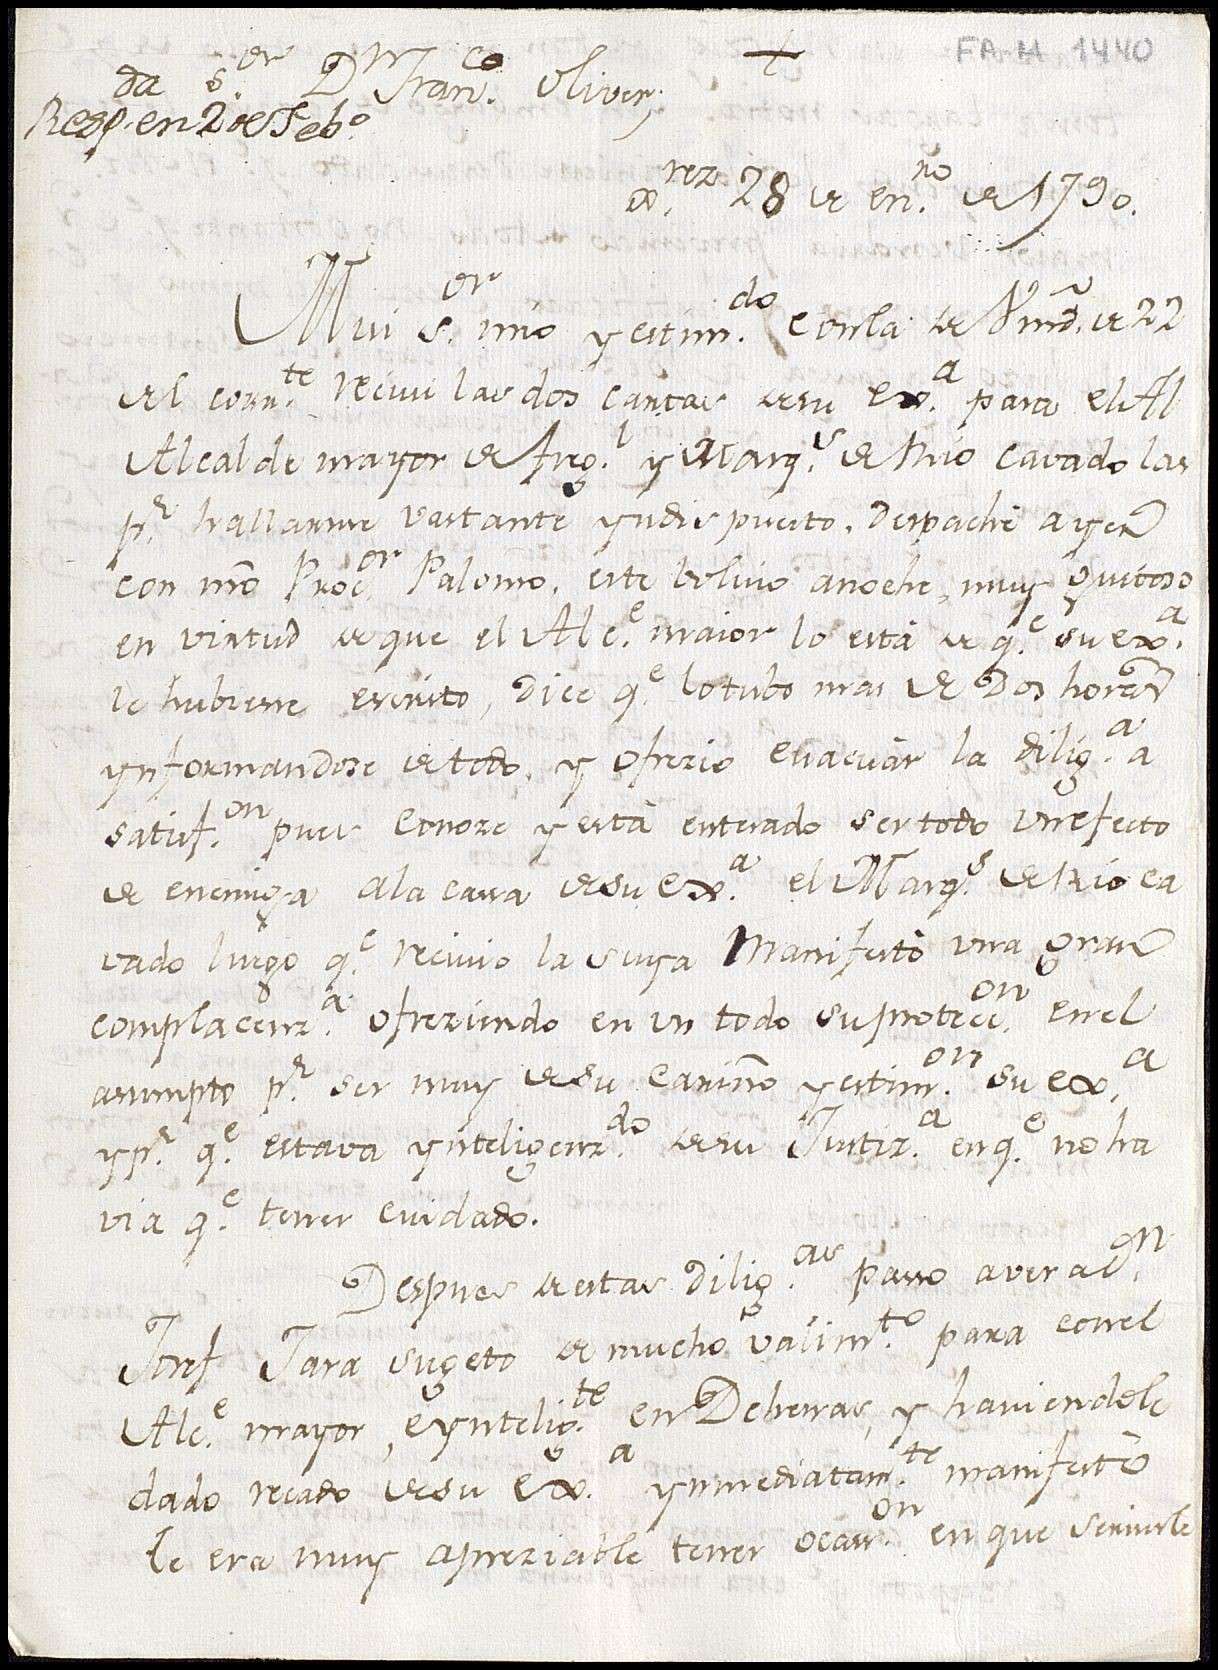 FA-M 1440
+
da S.or Dn Fran.co Oliver
Resp. en 2 de Feb.o
Xe.rez 28 de en.no de 1790.
Mui S.or mio y estim.do con la de Vmd. de 22
del corr.te recivi las dos cartas de su Ex.a para el Al
Alcalde mayor de freg.l y Marq.s de Rio cavado las
p.r hallarme vastante yndispuesto, despaché ayer
con nrõ Proc.or Palomo, este bolvio anoche, muy gustoso
en virtud de que el Alc.e maior lo está de q.e su ex.a
le hubiese escrito, dice q.e lo tubo mas de Dos horas
ynformandose de todo, y ofrezio evacuár la dilig.a a
satisf.on pues conoze y está enterado ser todo un efecto
de enemiga a la casa de su Ex.a el Marq.s de Rio ca
vado luego q.e recivio la suya Manifestó una gran
complacenz.a ofreziendo en un todo su protecc.on en el
asumpto p.r ser muy de su cariño y estim.on su ex.a
y p.r q.e estava ynteligenz.do de su Justiz.a en q.e no ha
via q.e tener cuidado.
Despues de estas dilig.as paso a ver a D.n
Josef Jara sugeto de mucho valim.to para con el
Alc.e mayor, e yntelig.te en Dehesas, y haviendole
dado recado de su ex.a ynmediatam.te manifestó
le era muy apreziable tener ocas.on en que servirle